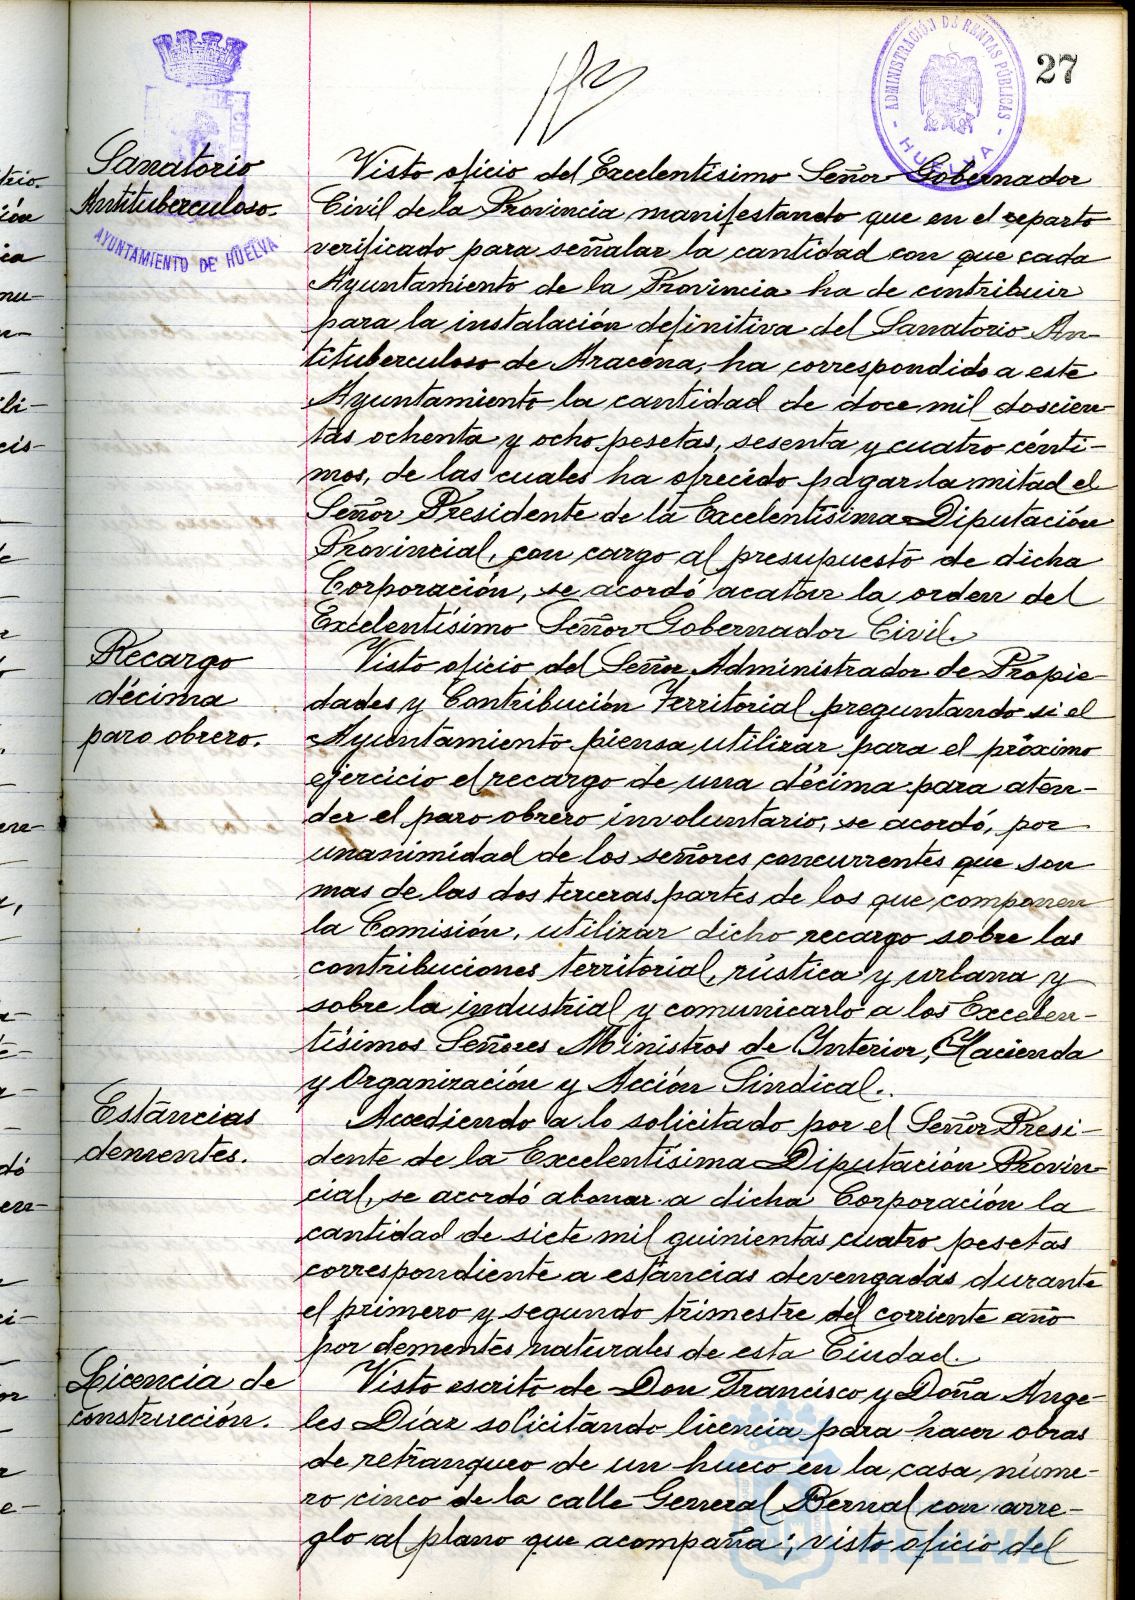 27
ADMINISTRACIÓN DE RENTAS PÚBLICAS
HUELVA
AYUNTAMIENTO DE HUELVA
Sanatorio
Antituberculoso.
Visto oficio del Excelentísimo Señor Gobernador
Civil de la Provincia manifestando que en el reparto
verificado para señalar la cantidad con que cada
Ayuntamiento de la Provincia ha de contribuir
para la instalación definitiva del Sanatorio An-
tituberculoso de Aracena, ha correspondido a este
Ayuntamiento la cantidad de doce mil doscien-
tas ochenta y ocho pesetas, sesenta y cuatro cénti-
mos, de las cuales ha ofrecido pagar la mitad el
Señor Presidente de la Excelentísima Diputación
Provincial, con cargo al presupuesto de dicha
Corporación, se acordó acatar la orden del
Excelentísimo Señor Gobernador Civil.
Recargo
décima
paro obrero.
Visto oficio del Señor Administrador de Propie-
dades y Contribución Territorial preguntando si el
Ayuntamiento piensa utilizar para el próximo
ejercicio el recargo de una décima para aten-
der el paro obrero involuntario, se acordó, por
unanimidad de los señores concurrentes que son
mas de las dos terceras partes de los que componen
la Comisión, utilizar dicho recargo sobre las
contribuciones territorial, rústica y urbana y
sobre la industrial y comunicarlo a los Excelen-
tísimos Señores Ministros de Interior, Hacienda
y Organización y Acción Sindical.
Estancias
dementes.
Accediendo a lo solicitado por el Señor Presi-
dente de la Excelentísima Diputación Provin-
cial, se acordó abonar a dicha Corporación la
cantidad de siete mil quinientas cuatro pesetas
correspondiente a estancias devengadas durante
el primero y segundo trimestre del corriente año
por dementes naturales de esta Ciudad.
Licencia de
construcción.
Visto escrito de Don Francisco y Doña Ange-
les Díaz solicitando licencia para hacer obras
de retranqueo de un hueco en la casa núme-
ro cinco de la calle General Bernal con arre-
glo al plano que acompaña; visto oficio del
HUELVA